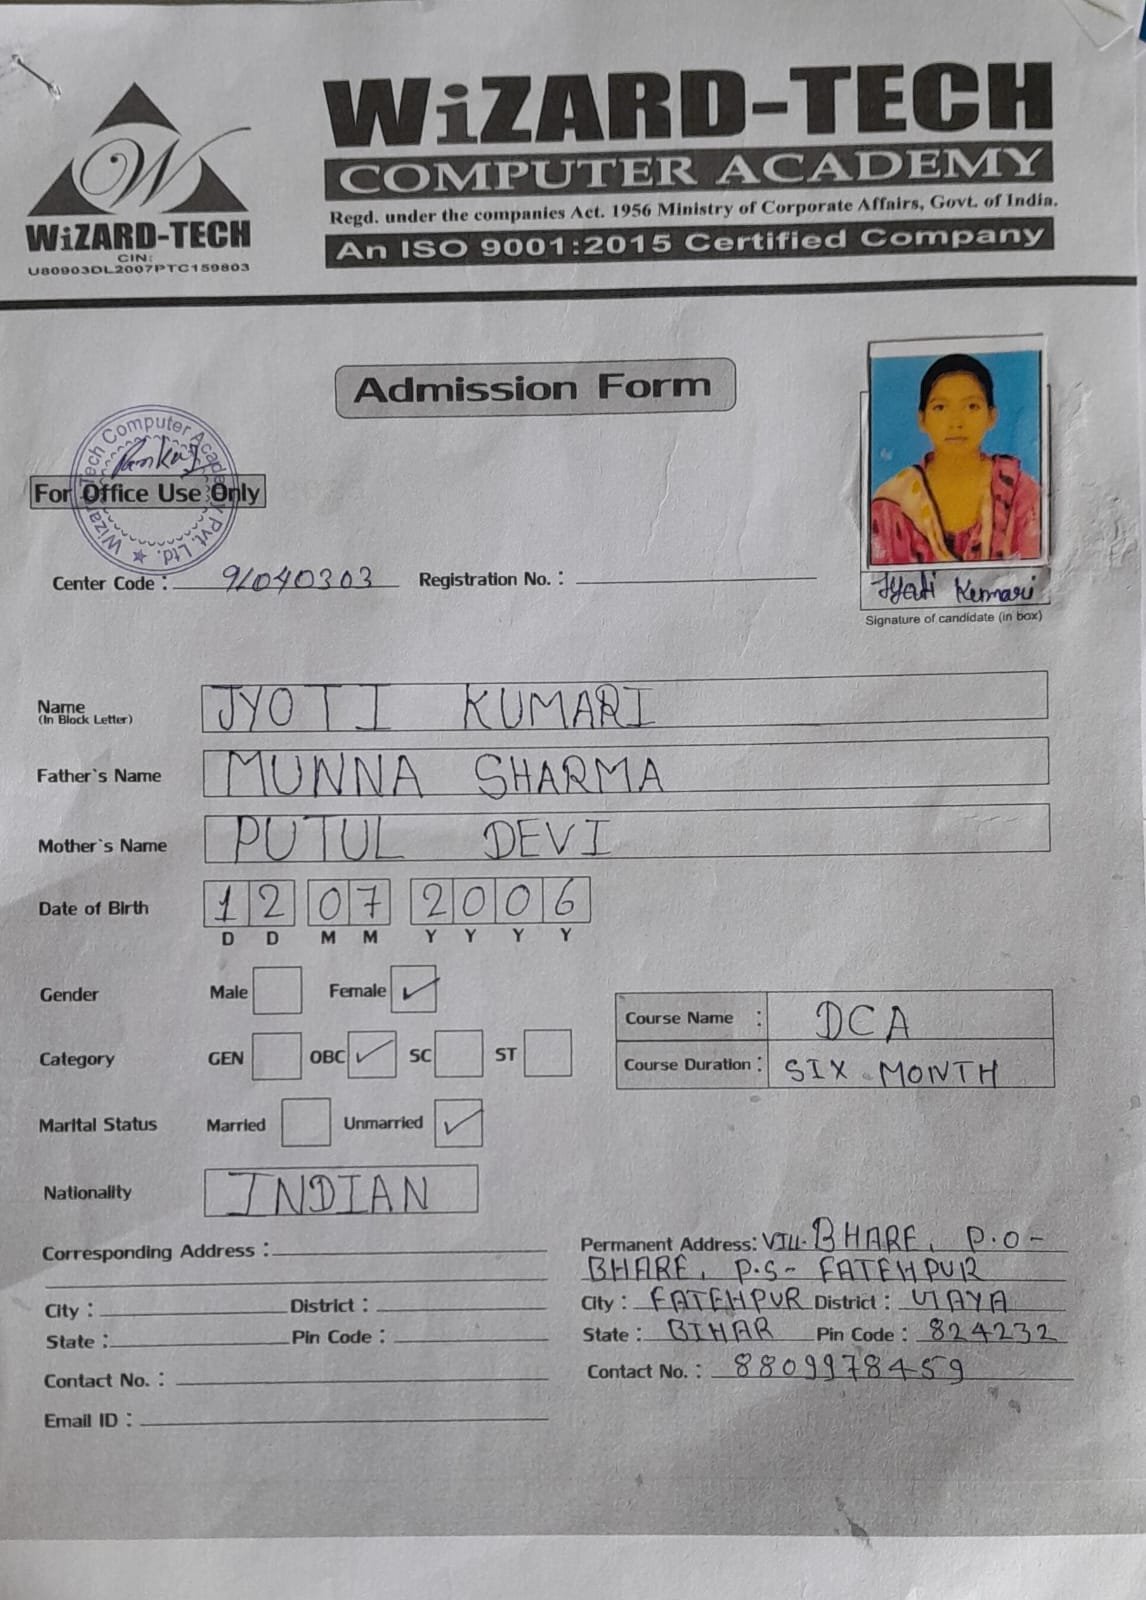 WiZARD-TECH
COMPUTER ACADEMY
Regd. under the companies Act. 1956 Ministry of Corporate Affairs, Govt. of India.
An ISO 9001:2015 Certified Company
W
WiZARD-TECH
CIN:
U80903DL2007PTC159803
Admission Form
Wizard Tech Computer Academy Pvt. Ltd.
Pankaj
For Office Use Only
Center Code : 91040303 Registration No. :
Jyoti Kumari
Signature of candidate (in box)
Name JYOTI KUMARI
(In Block Letter)
Father`s Name MUNNA SHARMA
Mother`s Name PUTUL DEVI
Date of Birth 12 07 2006
D D M M Y Y Y Y
Gender Male Female ✓
Course Name : DCA
Category GEN OBC ✓ SC ST
Course Duration : SIX MONTH
Marital Status Married Unmarried ✓
Nationality INDIAN
Corresponding Address :
City : District :
State : Pin Code :
Contact No. :
Email ID :
Permanent Address: VILL. BHARE, P.O-
BHARE, P.S- FATEHPUR
City : FATEHPUR District :
State : BIHAR Pin Code : 824232
Contact No. : 8809978459